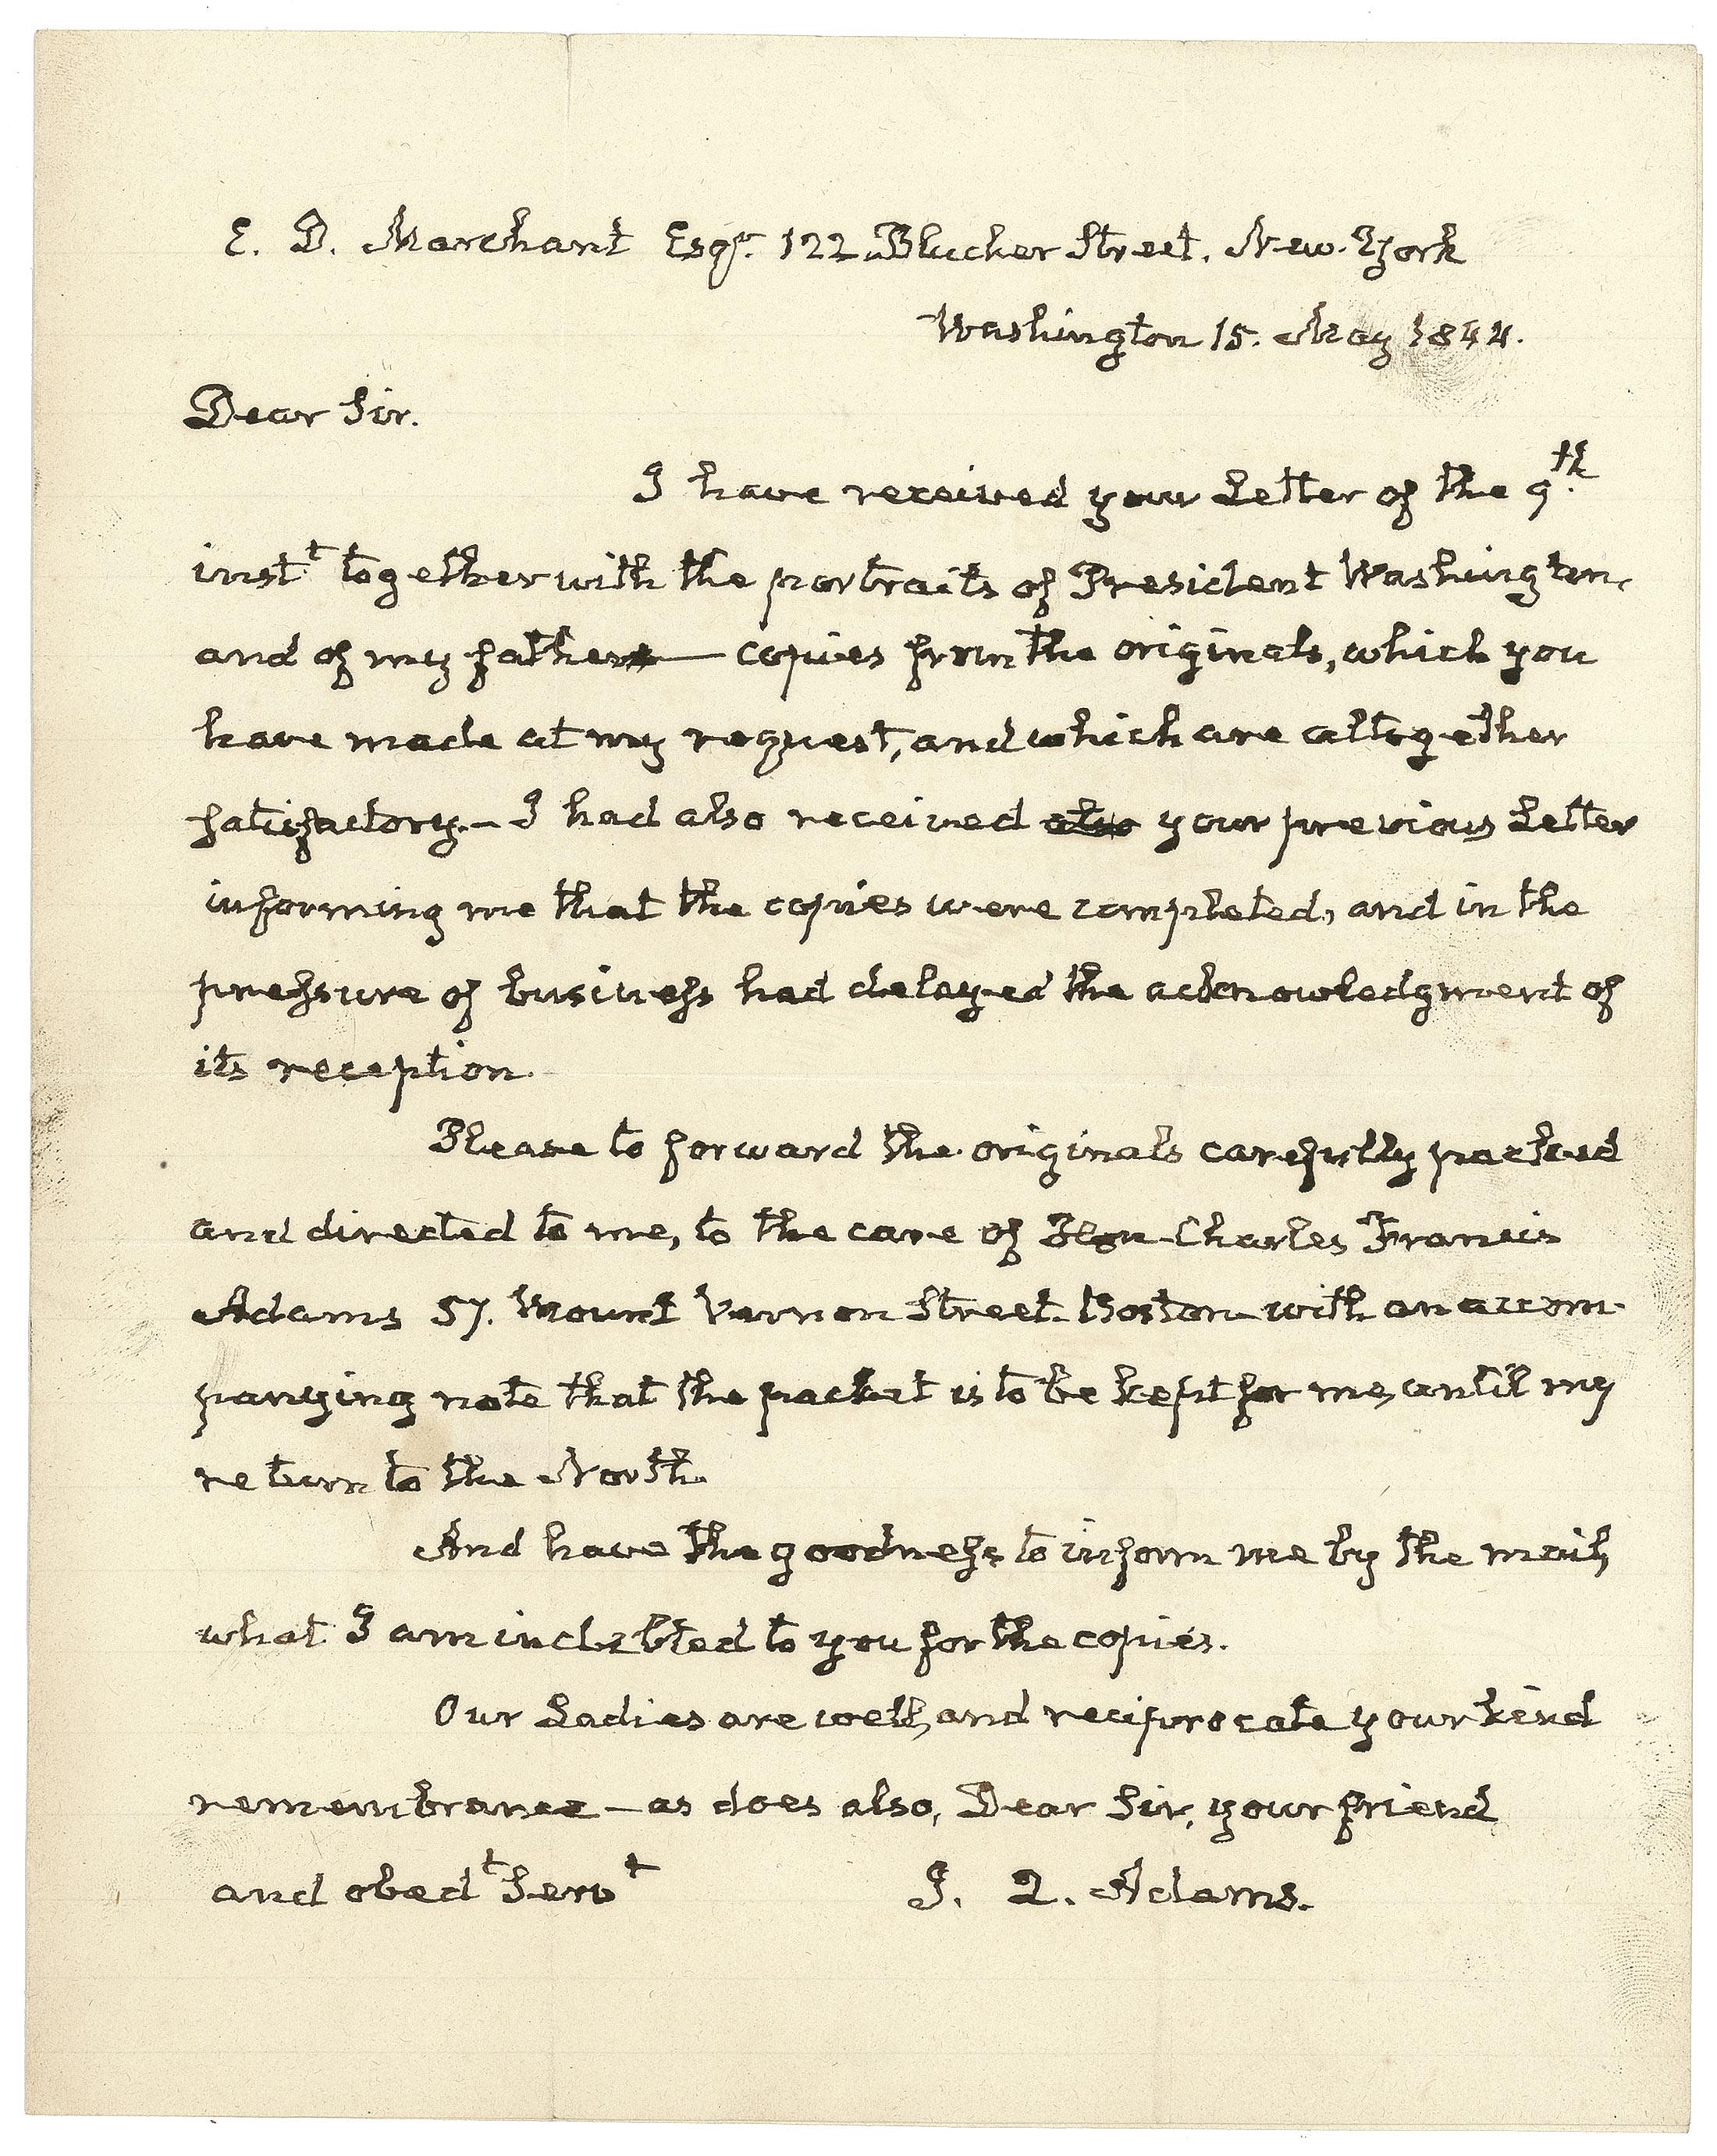 E. D. Marchant Esqr. 122 Blucker Street. New-York
Washington 15. May 1844.
Dear Sir.
I have received your Letter of the 9th.
instt together with the portraits of President Washington,
and of my father — copies from the originals, which you
have made at my request, and which are alltogether
satisfactory.— I had also received also your previous Letter
informing me that the copies were completed, and in the
pressure of business had delayed the acknowledgment of
its reception.
Please to forward the originals carefully packed
and directed to me, to the care of Hon Charles Francis
Adams 57. Mount Vernon Street. Boston with an accom-
panying note that the packet is to be kept for me, until my
return to the North.
And have the goodness to inform me by the mail,
what I am indebted to you for the copies.
Our Ladies are well, and reciprocate your kind
remembrance — as does also, Dear Sir, your friend
and obedt Servt J. Q. Adams.